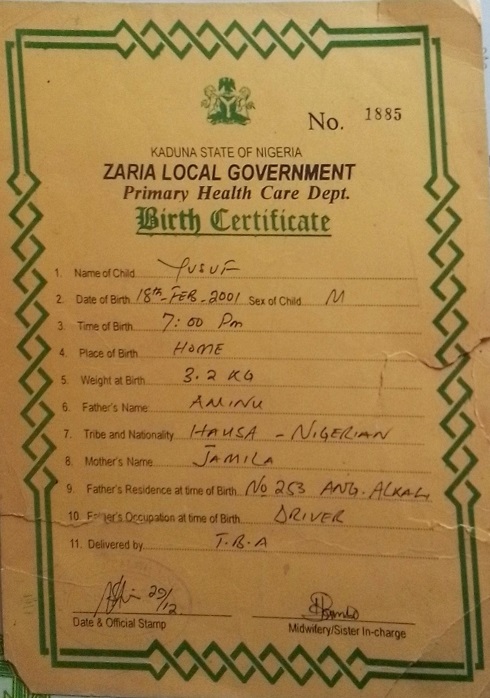 No. 1885
KADUNA STATE OF NIGERIA
ZARIA LOCAL GOVERNMENT
Primary Health Care Dept.
Birth Certificate
1. Name of Child YUSUF
2. Date of Birth 18th-FEB-2001 Sex of Child M
3. Time of Birth 7:00 Pm
4. Place of Birth HOME
5. Weight at Birth 3.2 KG
6. Father's Name: AMINU
7. Tribe and Nationality HAUSA - NIGERIAN
8. Mother's Name JAMILA
9. Father's Residence at time of Birth No 253 ANG. ALKALI
10. Father's Occupation at time of Birth DRIVER
11. Delivered by T.B.A
29/12
Date & Official Stamp
Midwifery/Sister In-charge